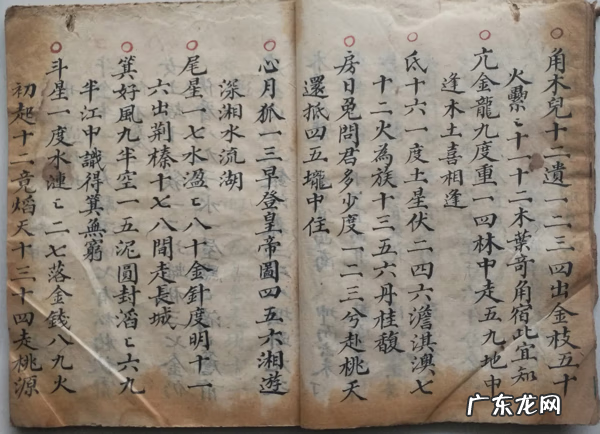 角木兒十二遺一二三四出金枝五十
火纍〻十一十二木葉奇角宿此宜知
亢金龍九度重一四林中走五九地中
逢木土喜相逢
氐十六一度土星伏二四六澹淇澳七
十二火為族十三五六丹桂馥
房日兔問君多少度一二三兮赴桃夭
還抵四五壠中住
心月狐一三早登皇帝圖四五六湘遊
深湖水流湖
尾星一七水盈〻八十金針度明十一
六出荆榛十七八間走長城
箕好風九半空一五泥圓封滔〻六九
半江中識得箕無窮
斗星一度水漣〻二七落金錢八九火
初起十二竟焰天十三十四走桃源
广东龙网